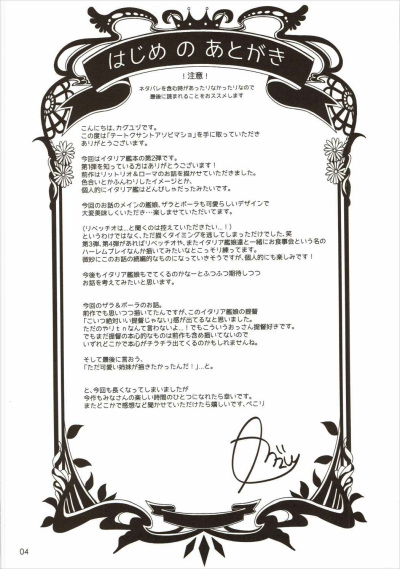 はじめ の あとがき
！注意！
ネタバレを含む時があったりなかったりなので
最後に読まれることをおススメします
こんにちは、カグユヅです。
この度は「テートクサントアソビマショ」を手に取っていただき
ありがとうございます。
今回はイタリア艦本の第2弾です。
第1弾を知っている方はありがとうございます！
前作はリットリオ&ローマのお話を描かせていただきました。
色合いとかふんわりしたイメージとか、
個人的にイタリア艦はどんぴしゃだったみたいです。
今回のお話のメインの艦娘、ザラとポーラも可愛らしいデザインで
大変美味しくいただき…楽しませていただいてます。
(リベッチオは…と聞くのは控えていただきたい…！)
というわけではなく、ただ描くタイミングを逃してしまっただけでした、笑
第3弾、第4弾があればリベッチオや、またイタリア艦娘達と一緒にお食事会という名の
ハーレムプレイなんか描いてみたいなとこっそり練ってます。
微妙にこのお話の続編的なものになっていきそうですが、個人的にも楽しみです！
今後もイタリア艦もでてくるのかなーとふつふつ期待しつつ
お話を考えてみたいと思います。
今回のザラ&ポーラのお話。
前作でも思いつつ描いてたんですが、このイタリア艦娘の提督
「こいつ絶対いい提督じゃない」感が出てるなと思いました。
ただのやりtnなんて言わないよ…！でもこういうおっさん提督好きです。
でもまだ提督の本心的なものは前作も含め描いてないので
いずれどこかで本心がチラチラ出てくるのかもしれませんね。
そして最後に言おう、
「ただ可愛い姉妹が描きたかったんだ！」…と。
と、今回も長くなってしまいましたが
今作もみなさんの楽しい時間のひとつになれたら幸いです。
またどこかで感想など聞かせていただけたら嬉しいです、ぺこり
04